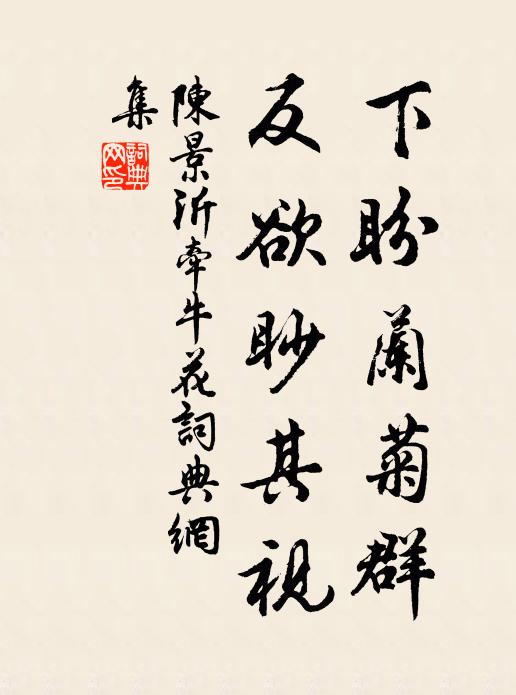 下盼蘭菊群
反欲眇其視
陳景沂牽牛花詞典網
集
詞典網印